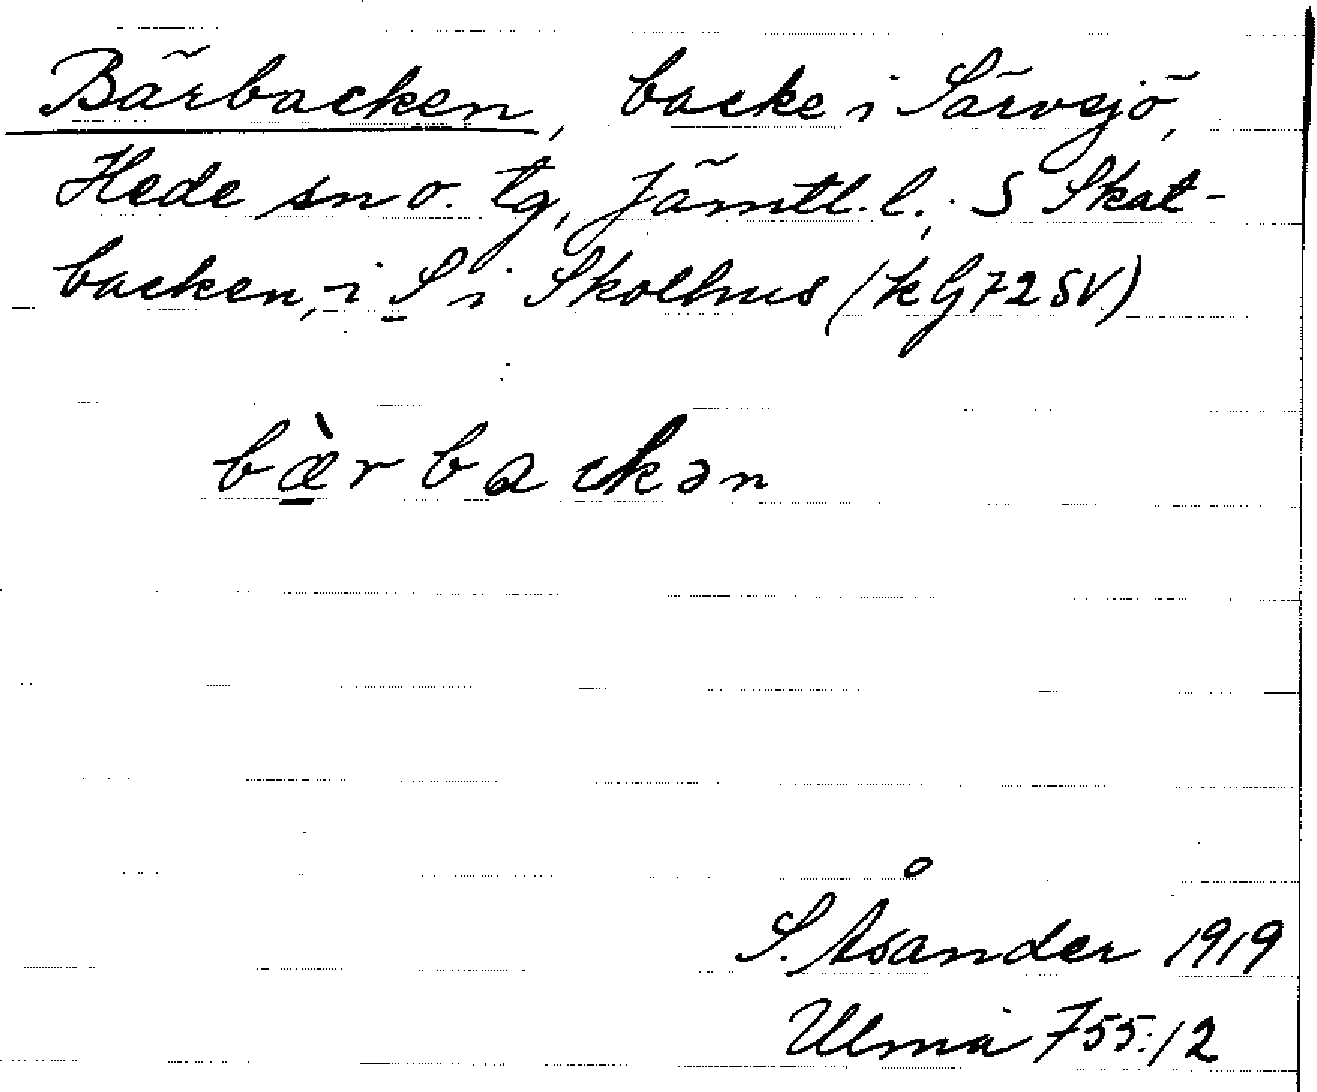 Bärbacken, backe i Särvsjö,
Hede sn o. tg, Jämtl. l.; S Skat-
backen, i S i Skolhus (kG72SV)
bæ̀rbackən
S. Åsander 1919
Ulma 755:12